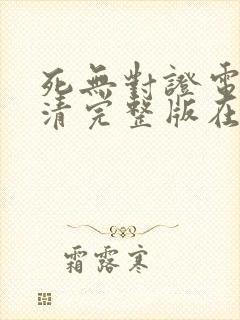 死無對證電
清完整版在
霜露寒